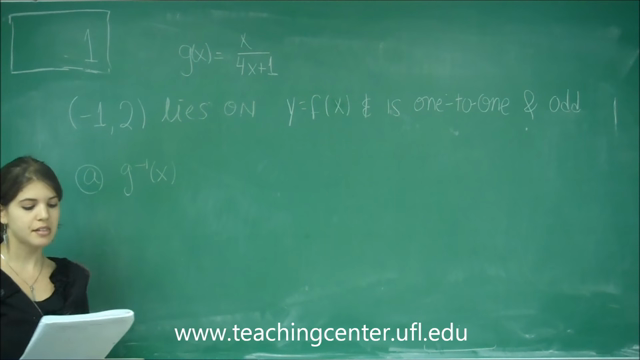 1
g(x) = x/4x+1
(-1,2) lies on y=f(x) & is one-to-one & odd
ⓐ g⁻¹(x)
www.teachingcenter.ufl.edu